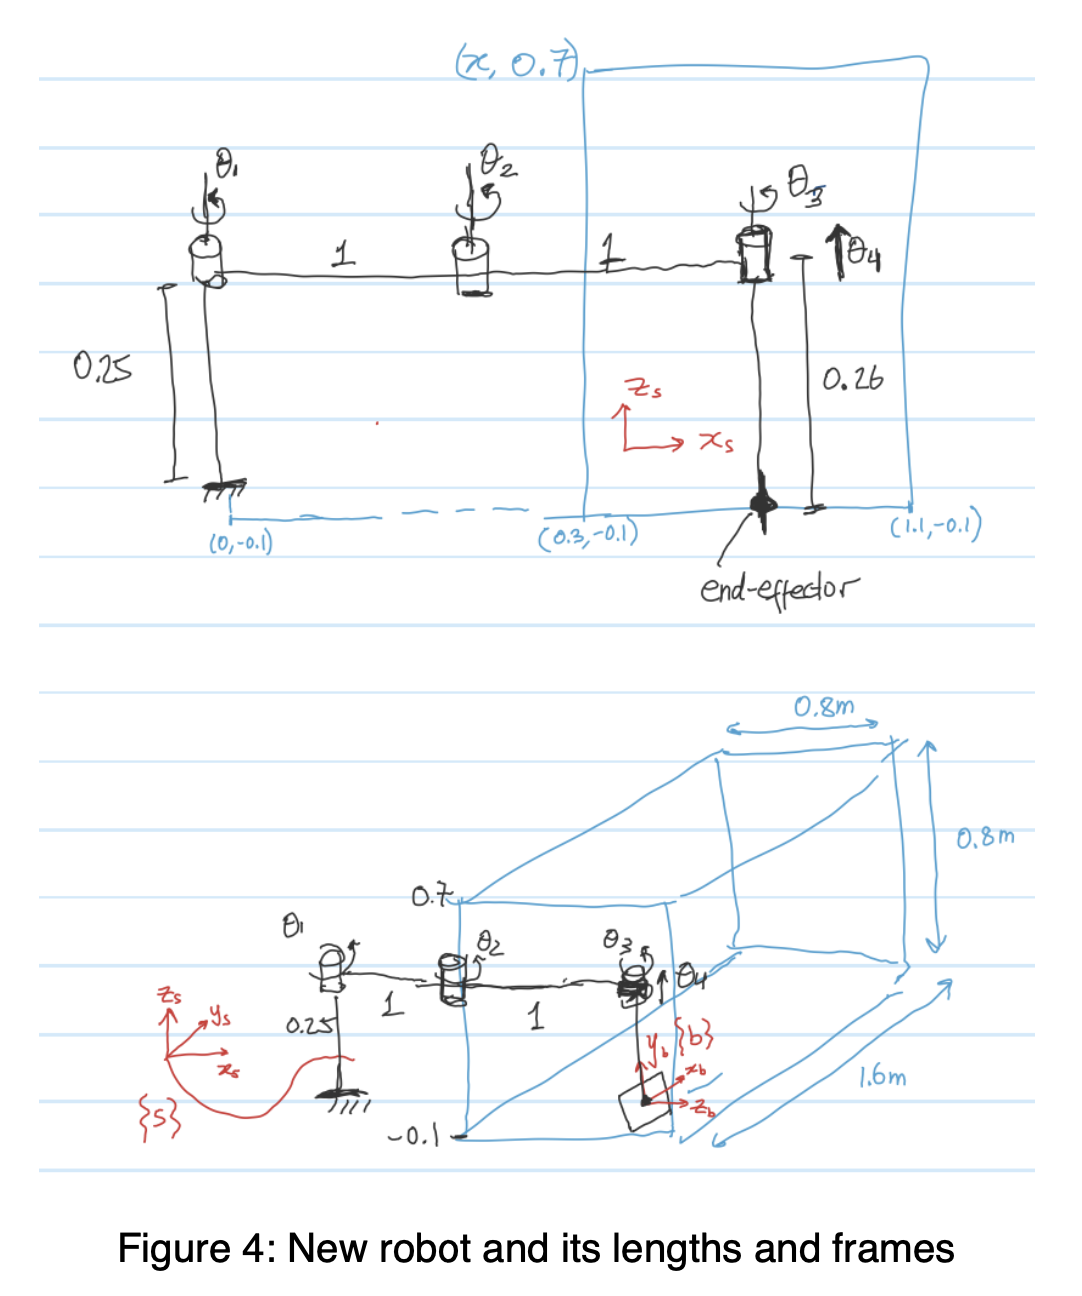 (x, 0.7)
θ₁
θ₂
θ₃
1
1
θ₄
0.25
0.26
z_s
x_s
(0,-0.1)
(0.3,-0.1)
(1.1,-0.1)
end-effector
0.8m
0.8m
0.7
θ₁
θ₂
θ₃
θ₄
z_s
y_s
x_s
0.25
1
1
y_b
{b}
x_b
z_b
1.6m
{s}
-0.1
Figure 4: New robot and its lengths and frames